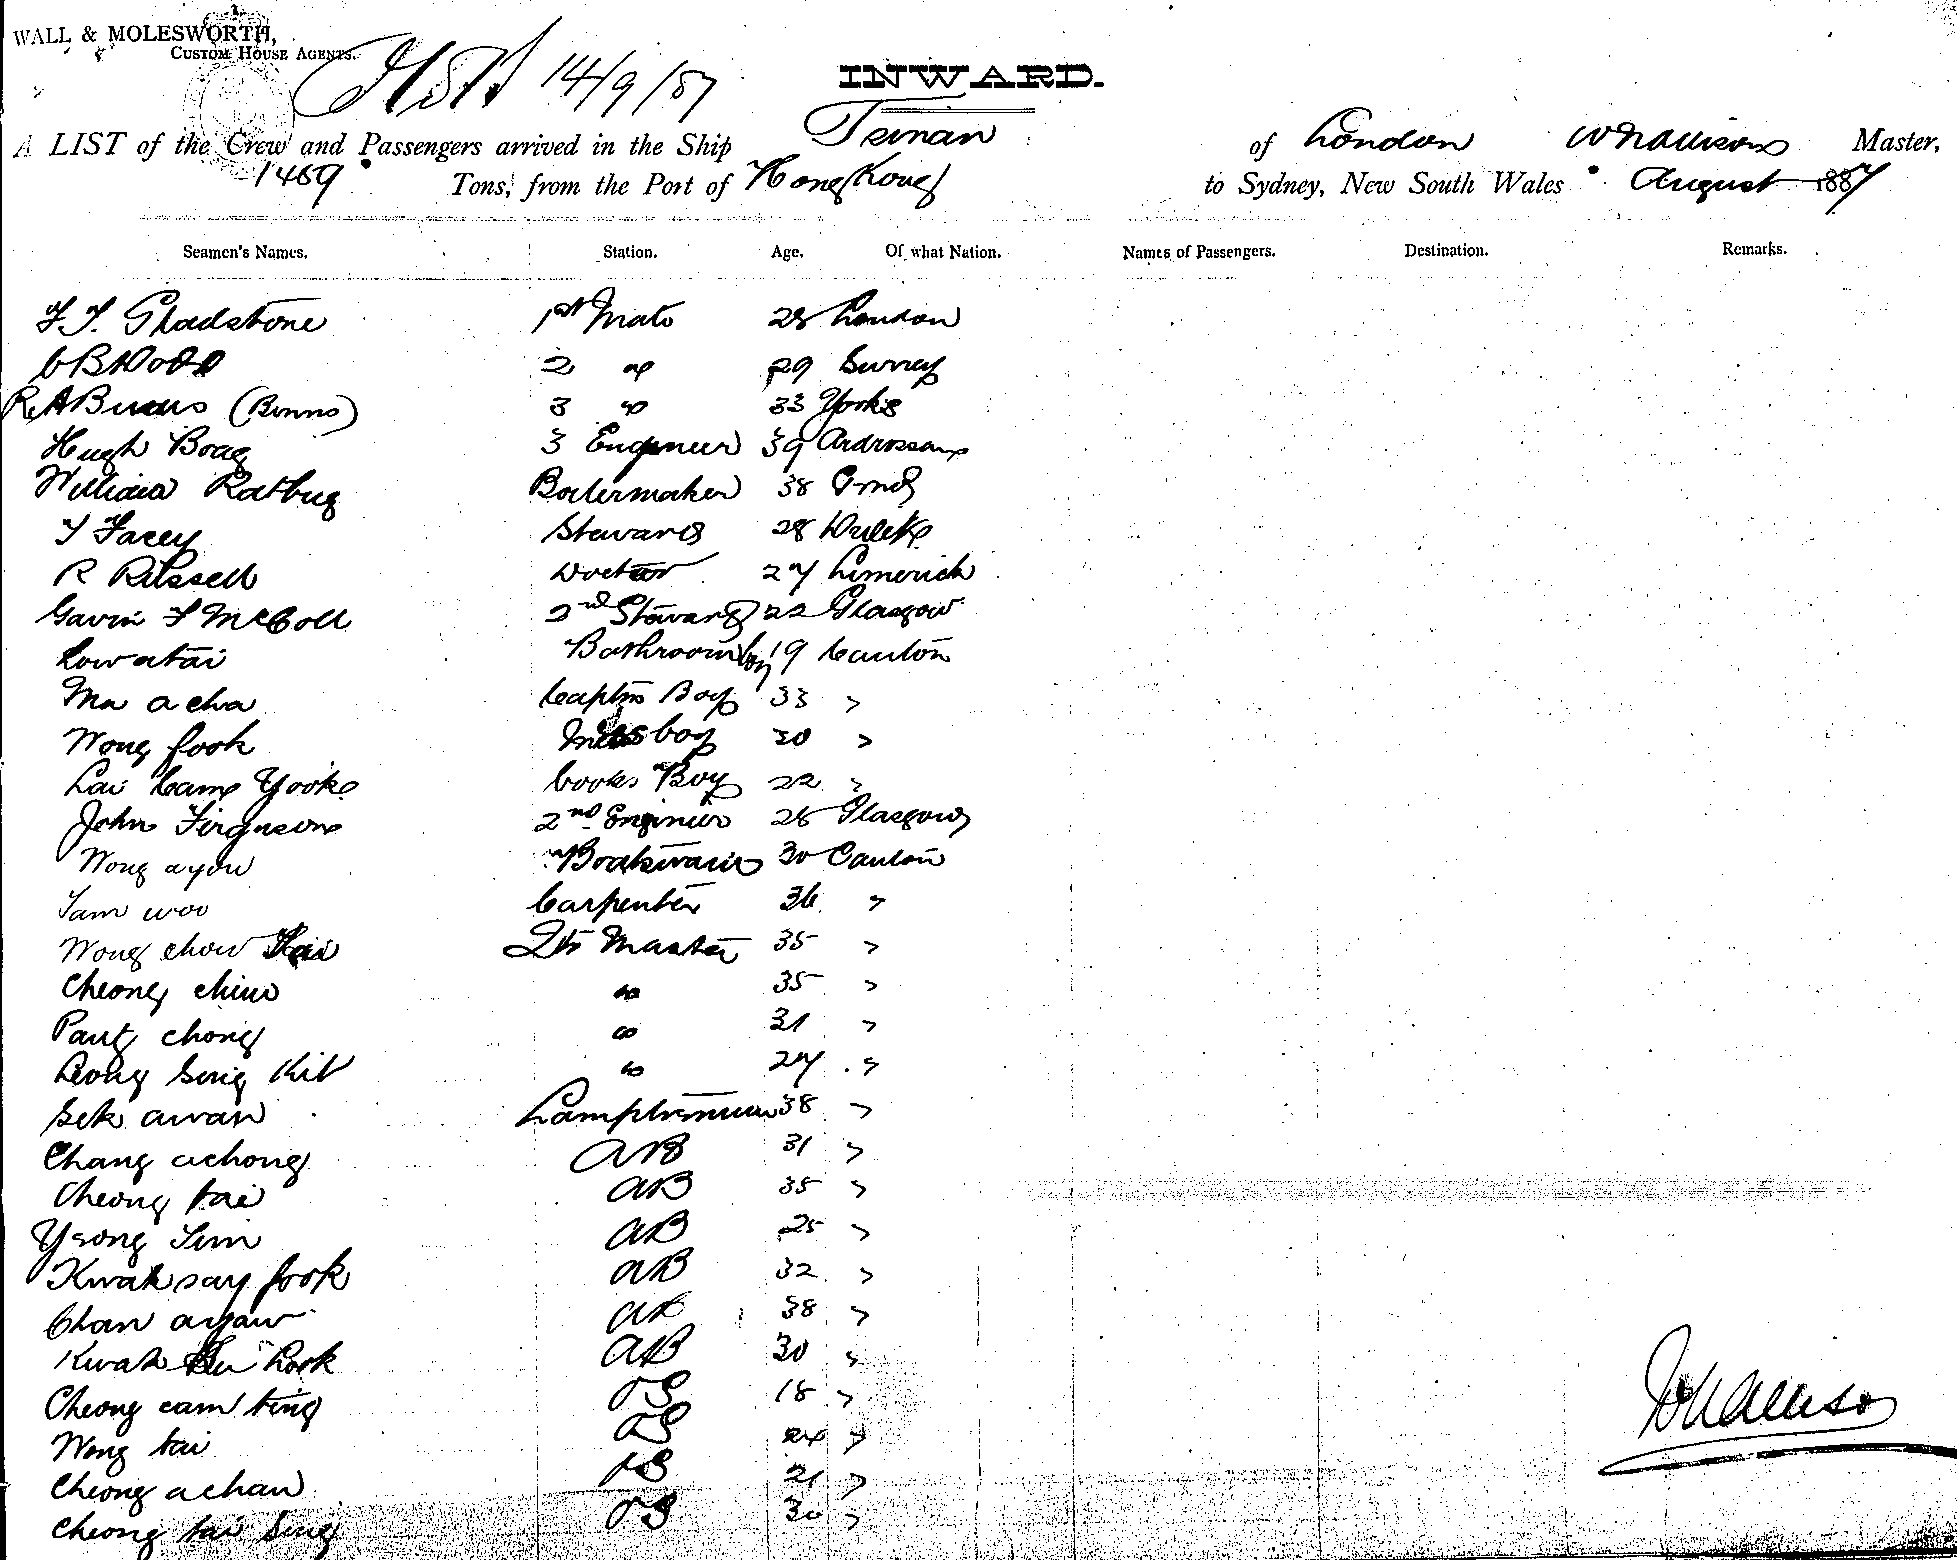 WALL & MOLESWORTH,
CUSTOM HOUSE AGENTS.
14/9/87
INWARD.
A LIST of the Crew and Passengers arrived in the Ship Tsinan of London W Nallison Master,
1469 Tons, from the Port of Hong Kong to Sydney, New South Wales August 1887
Seamen's Names. Station. Age. Of what Nation. Names of Passengers. Destination. Remarks.
F. T. Gladstone 1st Mate 28 London
C B Wood 2 do 29 Surrey
R A Binns (Binns) 3 do 33 Yorks
Hugh Boag 3 Engineer 39 Ardrossan
William Rathbug Boilermaker 38
T Facey Steward 28
R Russell Doctor 27 Limerick
Gavin F McColl 2nd Steward 22 Glasgow
Low atai Bathroom boy 19 Canton
Ma acha Captns Boy 33 "
Wong fook Mess boy 30 "
Lai Cam Yook Cooks Boy 22 "
John Ferguson 2nd Engineer 26 Glasgow
Wong ayou Boatswain 30 Canton
Tam woo Carpenter 36 "
Wong chow Qtr Master 35 "
Cheong chiu do 35 "
Pang chong do 31 "
Leong Sing Kit do 27 "
Sek awan Lamptrimmer 38 "
Chang achong AB 31 "
Cheong tai AB 35 "
Yeong Sim AB 25 "
Kwak say fook AB 32 "
Chan ayaw AB 38 "
Kwak Rook AB 30 "
Cheong cam ting OS 18 "
Wong tai OS 24 "
Cheong achan OS 21 "
Cheong tai Sing OS 30 "
W Nallison